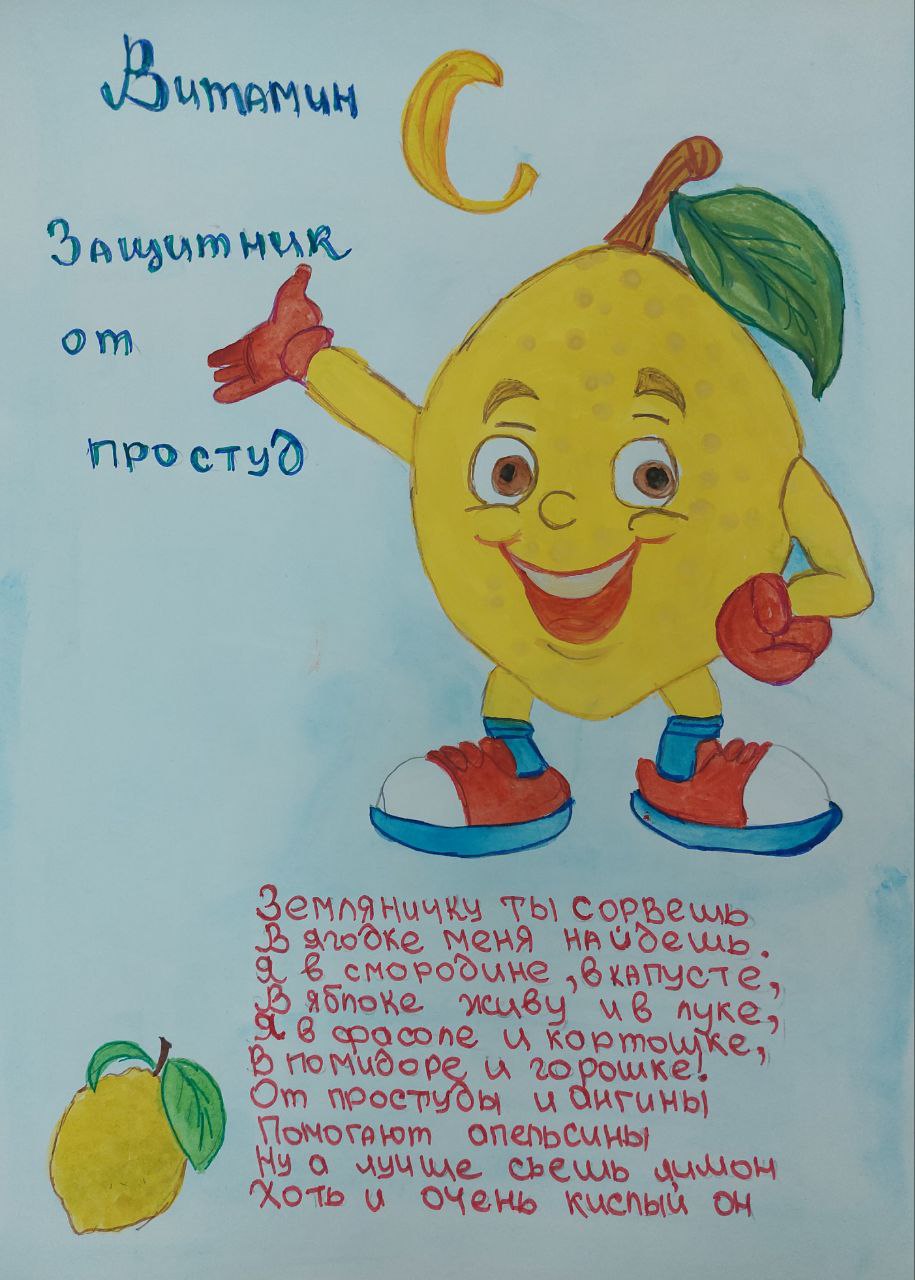 Витамин С
Защитник
от
простуд
Земляничку ты сорвешь
В ягодке меня найдешь.
Я в смородине, в капусте,
В яблоке живу и в луке,
Я в фасоле и картошке,
В помидоре и горошке!
От простуды и ангины
Помогают апельсины
Ну а лучше сьешь лимон
Хоть и очень кислый он